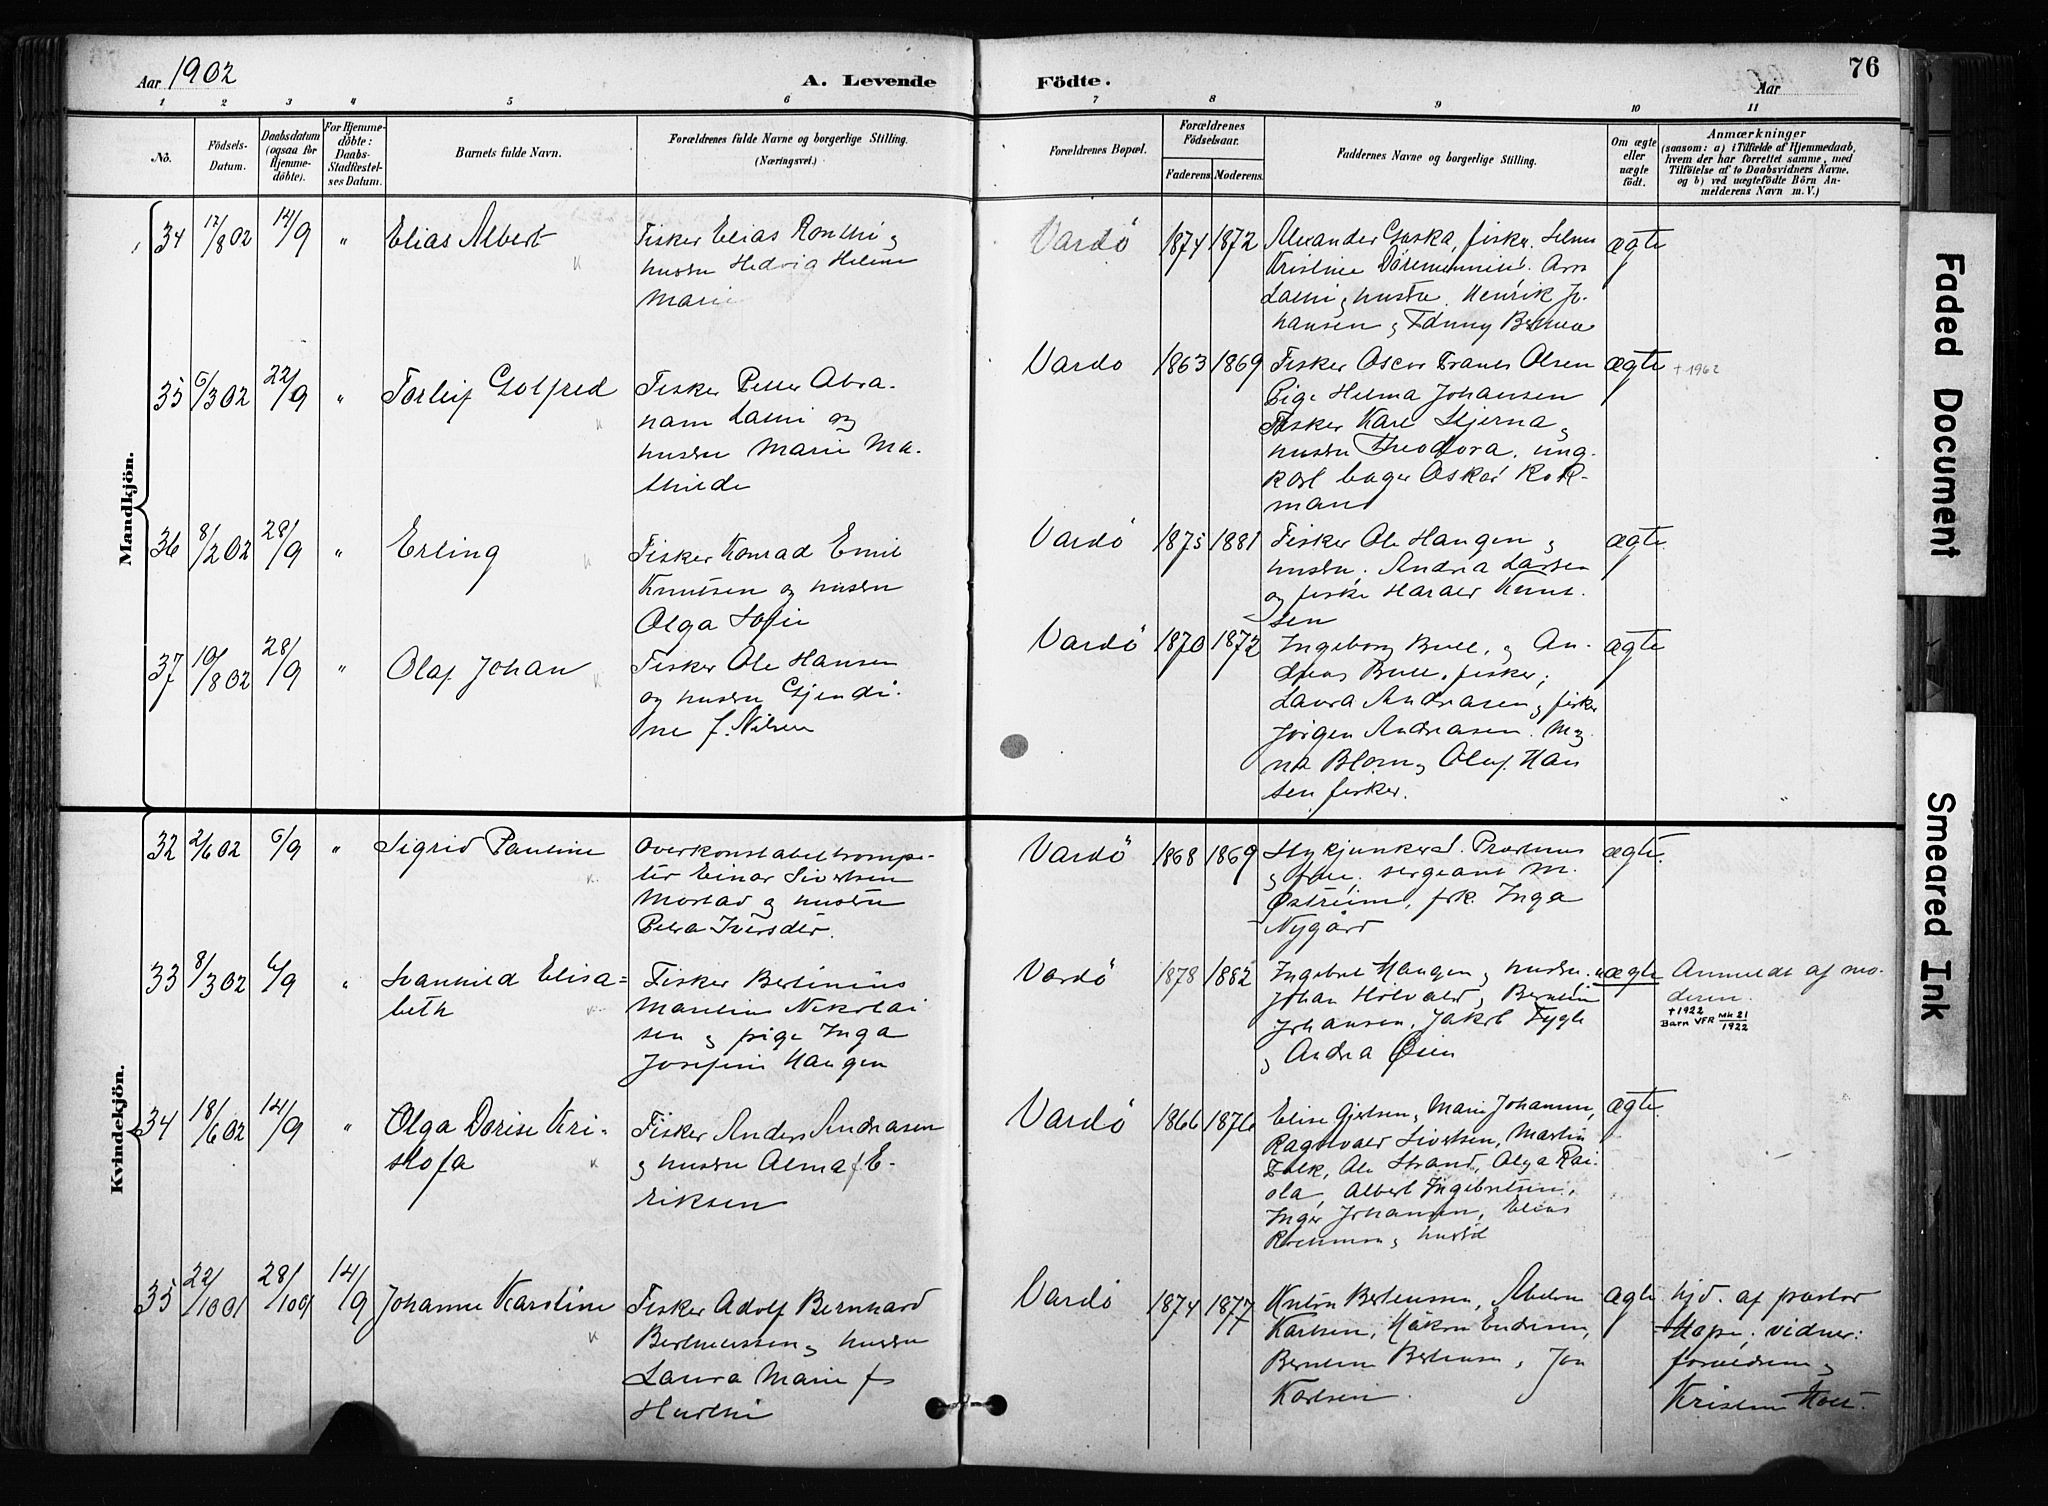 Aar 1902
A. Levende
Födte.
Aar
76
1 2 3 4 5 6 7 8 9 10 11
No.
Födsels-Datum.
Daabsdatum (ogsaa for Hjemme-döbte).
For Hjemme-döbte: Daabs-Stadfæstel-ses Datum.
Barnets fulde Navn.
Forældrenes fulde Navne og borgerlige Stilling.
(Næringsvei.)
Forældrenes Bopæl.
Forældrenes Födselsaar.
Faderens. Moderens.
Faddernes Navne og borgerlige Stilling.
Om ægte eller uægte födt.
Anmærkninger
(saasom: a) i Tilfælde af Hjemmedaab,
hvem der har forrettet samme, med
Tilföielse af to Daabsvidners Navne,
og b) ved uægtefödte Börn An-
melderens Navn m. V.)
Mandkjön.
34 12/8 02 14/9 " Elias Albert
Fisker Elias og
hustru Hedvig Helene
Marie
Vardö 1874 1872
Alexander fisker.
Kristine
hustru. Henrik Jo-
hansen og
ægte
35 6/3 02 22/9 " Torleif Golfred
Fisker Peter Abra-
ham Lahti og
hustru Marie Ma-
thilde
Vardö 1863 1869
Fisker Oscar Frants Olsen
Pige Helma Johansen
Fisker Karl Stjerna og
hustru Theodora, ung-
karl bager Oskar Rok-
mand
ægte
+ 1962
36 8/2 02 28/9 " Erling
Fisker Konrad Emil
Knutsen og hustru
Olga Sofie
Vardö 1875 1881
Fisker Ole Haugen og
hustru, Andrea Larsen
og fisker Harald Knut-
sen
ægte.
37 10/8 02 28/9 " Olaf Johan
Fisker Ole Hansen
og hustru Gjendi-
ne f. Nilsen
Vardö 1870 1872
Ingeborg Bull, og An-
dreas Bull, fisker,
Laura Andreasen og fisker
Jörgen Andreasen. Mag-
na Blom og Olaf Han
sen fisker.
ægte
Kvindekjön.
32 2/6 02 6/9 " Sigrid Pauline
Overkonstabeltrompe-
tér Einar Sivertsen
Morstad og hustru
Petra Iversdtr.
Vardö 1868 1869
Stykjunker
og frue, sergeant M.
Østreim, frk. Inga
Nygård
ægte.
33 8/3 02 6/9 " Svanhild Elisa-
beth
Fisker Bertinius
Marelius Nikolai
sen og pige Inga
Josefine Haugen
Vardö 1878 1882
Ingebret Haugen og hustru.
Johan og Berntine
Johansen, Jakob
og Andrea Øien
uægte
Anmeldt af mo-
deren.
+ 1922
Barn VFR Mk 21/1922
34 18/6 02 14/9 " Olga Dorise Kri-
stofa
Fisker Anders Andreasen
og hustru Alma f E-
riksen
Vardö 1866 1876
Elise Gjertsen, Marie Johansen,
Ragnvald Sivertsen, Martin
Falk, Ole Strand, Olga Rai-
ola, Albert Ingebretsen,
Inger Johansen, Elias
og hustru
ægte.
35 22/10 01 28/10 01 14/9 Johanne Karoline
Fisker Adolf Bernhard
Bertheussen og hustru
Laura Marie f
Hurthi
Vardö 1874 1877
Anton Bertheussen,
Karlsen, Håkon Endresen,
Berntine Bertheusen, Jon
Karlsen.
ægte
hjd. af pastor
Hope. vidner:
forældrene og
Kristen Holt.
Faded Document
Smeared Ink